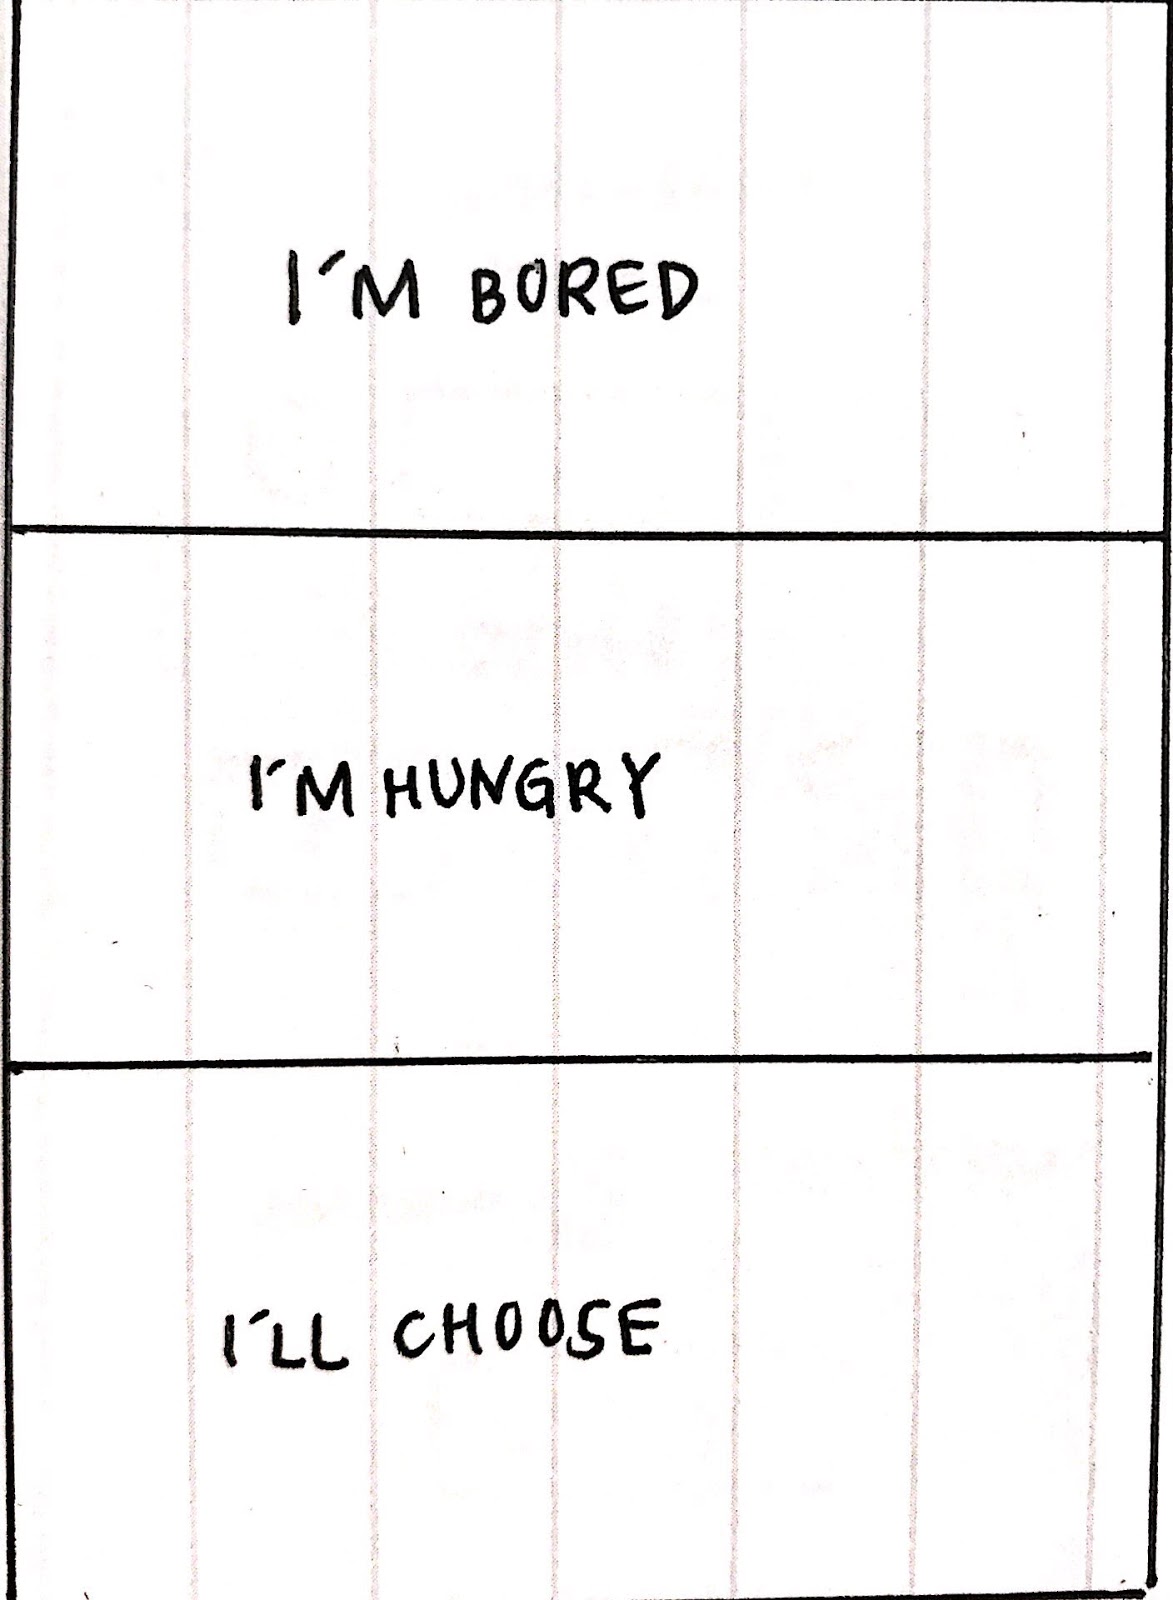 I´M BORED
I´M HUNGRY
I´LL CHOOSE